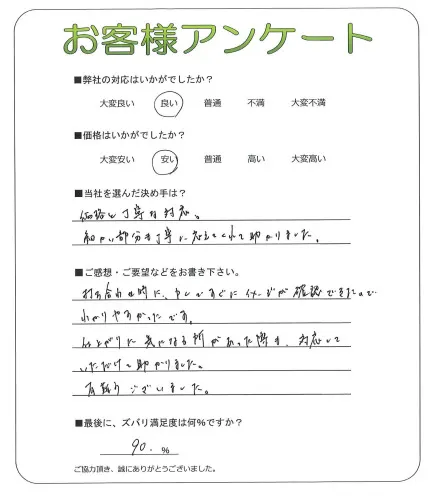 お客様アンケート
■弊社の対応はいかがでしたか?
大変良い 良い 普通 不満 大変不満
■価格はいかがでしたか?
大変安い 安い 普通 高い 大変高い
■当社を選んだ決め手は?
価格と丁寧な対応。
細かい部分も丁寧に応えてくれて助かりました。
■ご感想・ご要望などをお書き下さい。
打ち合わせ時に、すぐにイメージが確認できたので
わかりやすかったです。
仕上がりに気になる所があった際も、対応して
いただけて助かりました。
有難うございました。
■最後に、ズバリ満足度は何%ですか?
90. %
ご協力頂き、誠にありがとうございました。